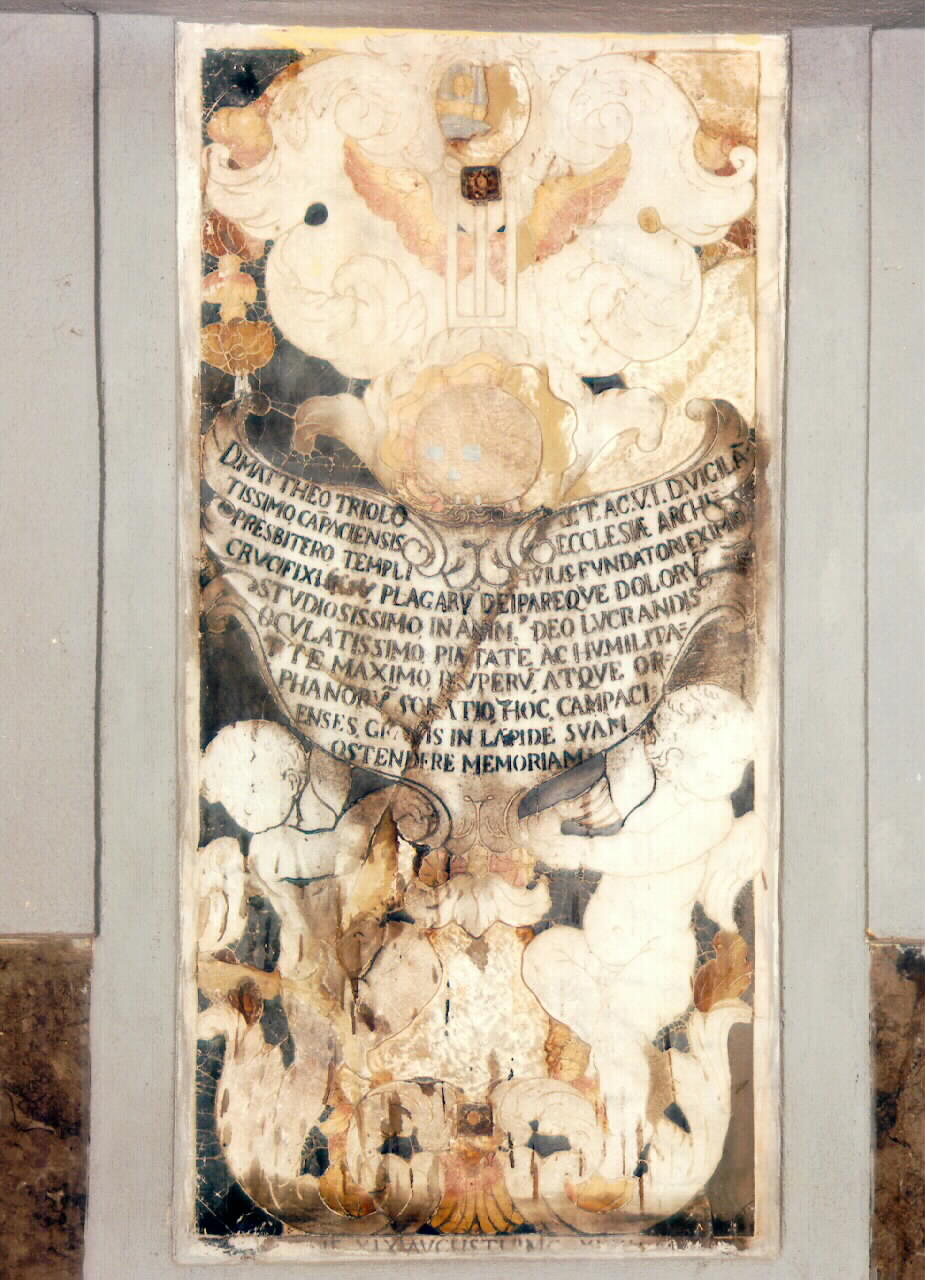 D. MATTHEO TRIOLO S. T. AC. V. I. D. VIGILĀ-
TISSIMO CAPACIENSIS ECCLESIÆ ARCHI-
PRESBITERO TEMPLI HVIUS FVNDATORI EXIMIO
CRVCIFIXI PLAGARV̄, DEIPAREQVE DOLORV̄
STVDIOSISSIMO, IN ANIM. DEO LVCRANDIS
OCVLATISSIMO, PIETATE, AC HVMILITA-
TE MAXIMO, PAVPERV̄, ATQVE OR-
PHANORV̄ SOLATIO, HOC, CAMPACI
ENSES, GRATIS IN LAPIDE SVAM
OSTENDERE MEMORIAM
XIX AVGVSTI